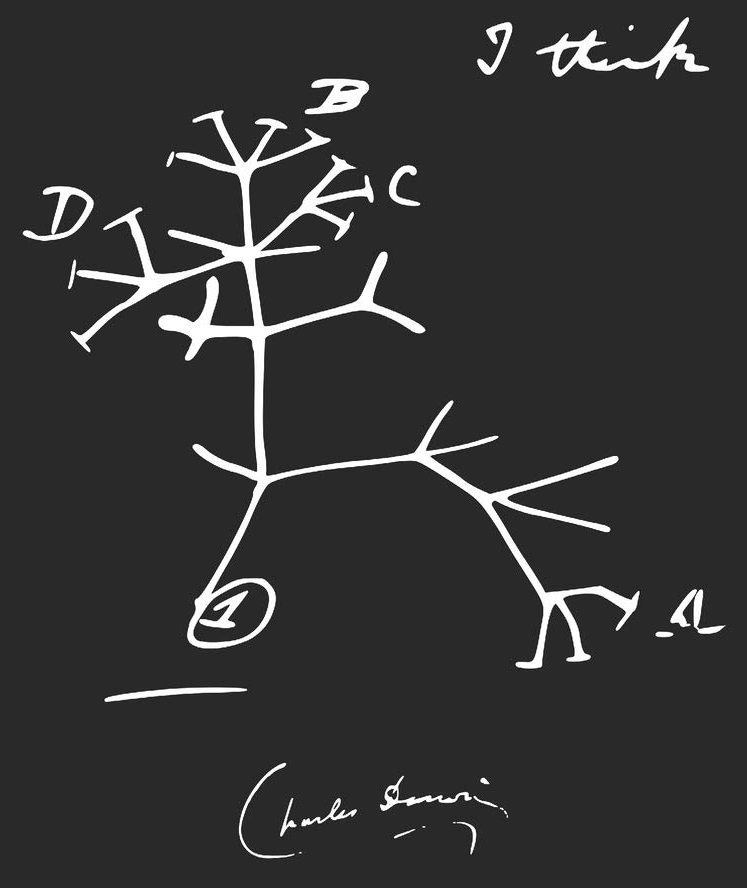 I think
B
C
D
1
A
Charles Darwin